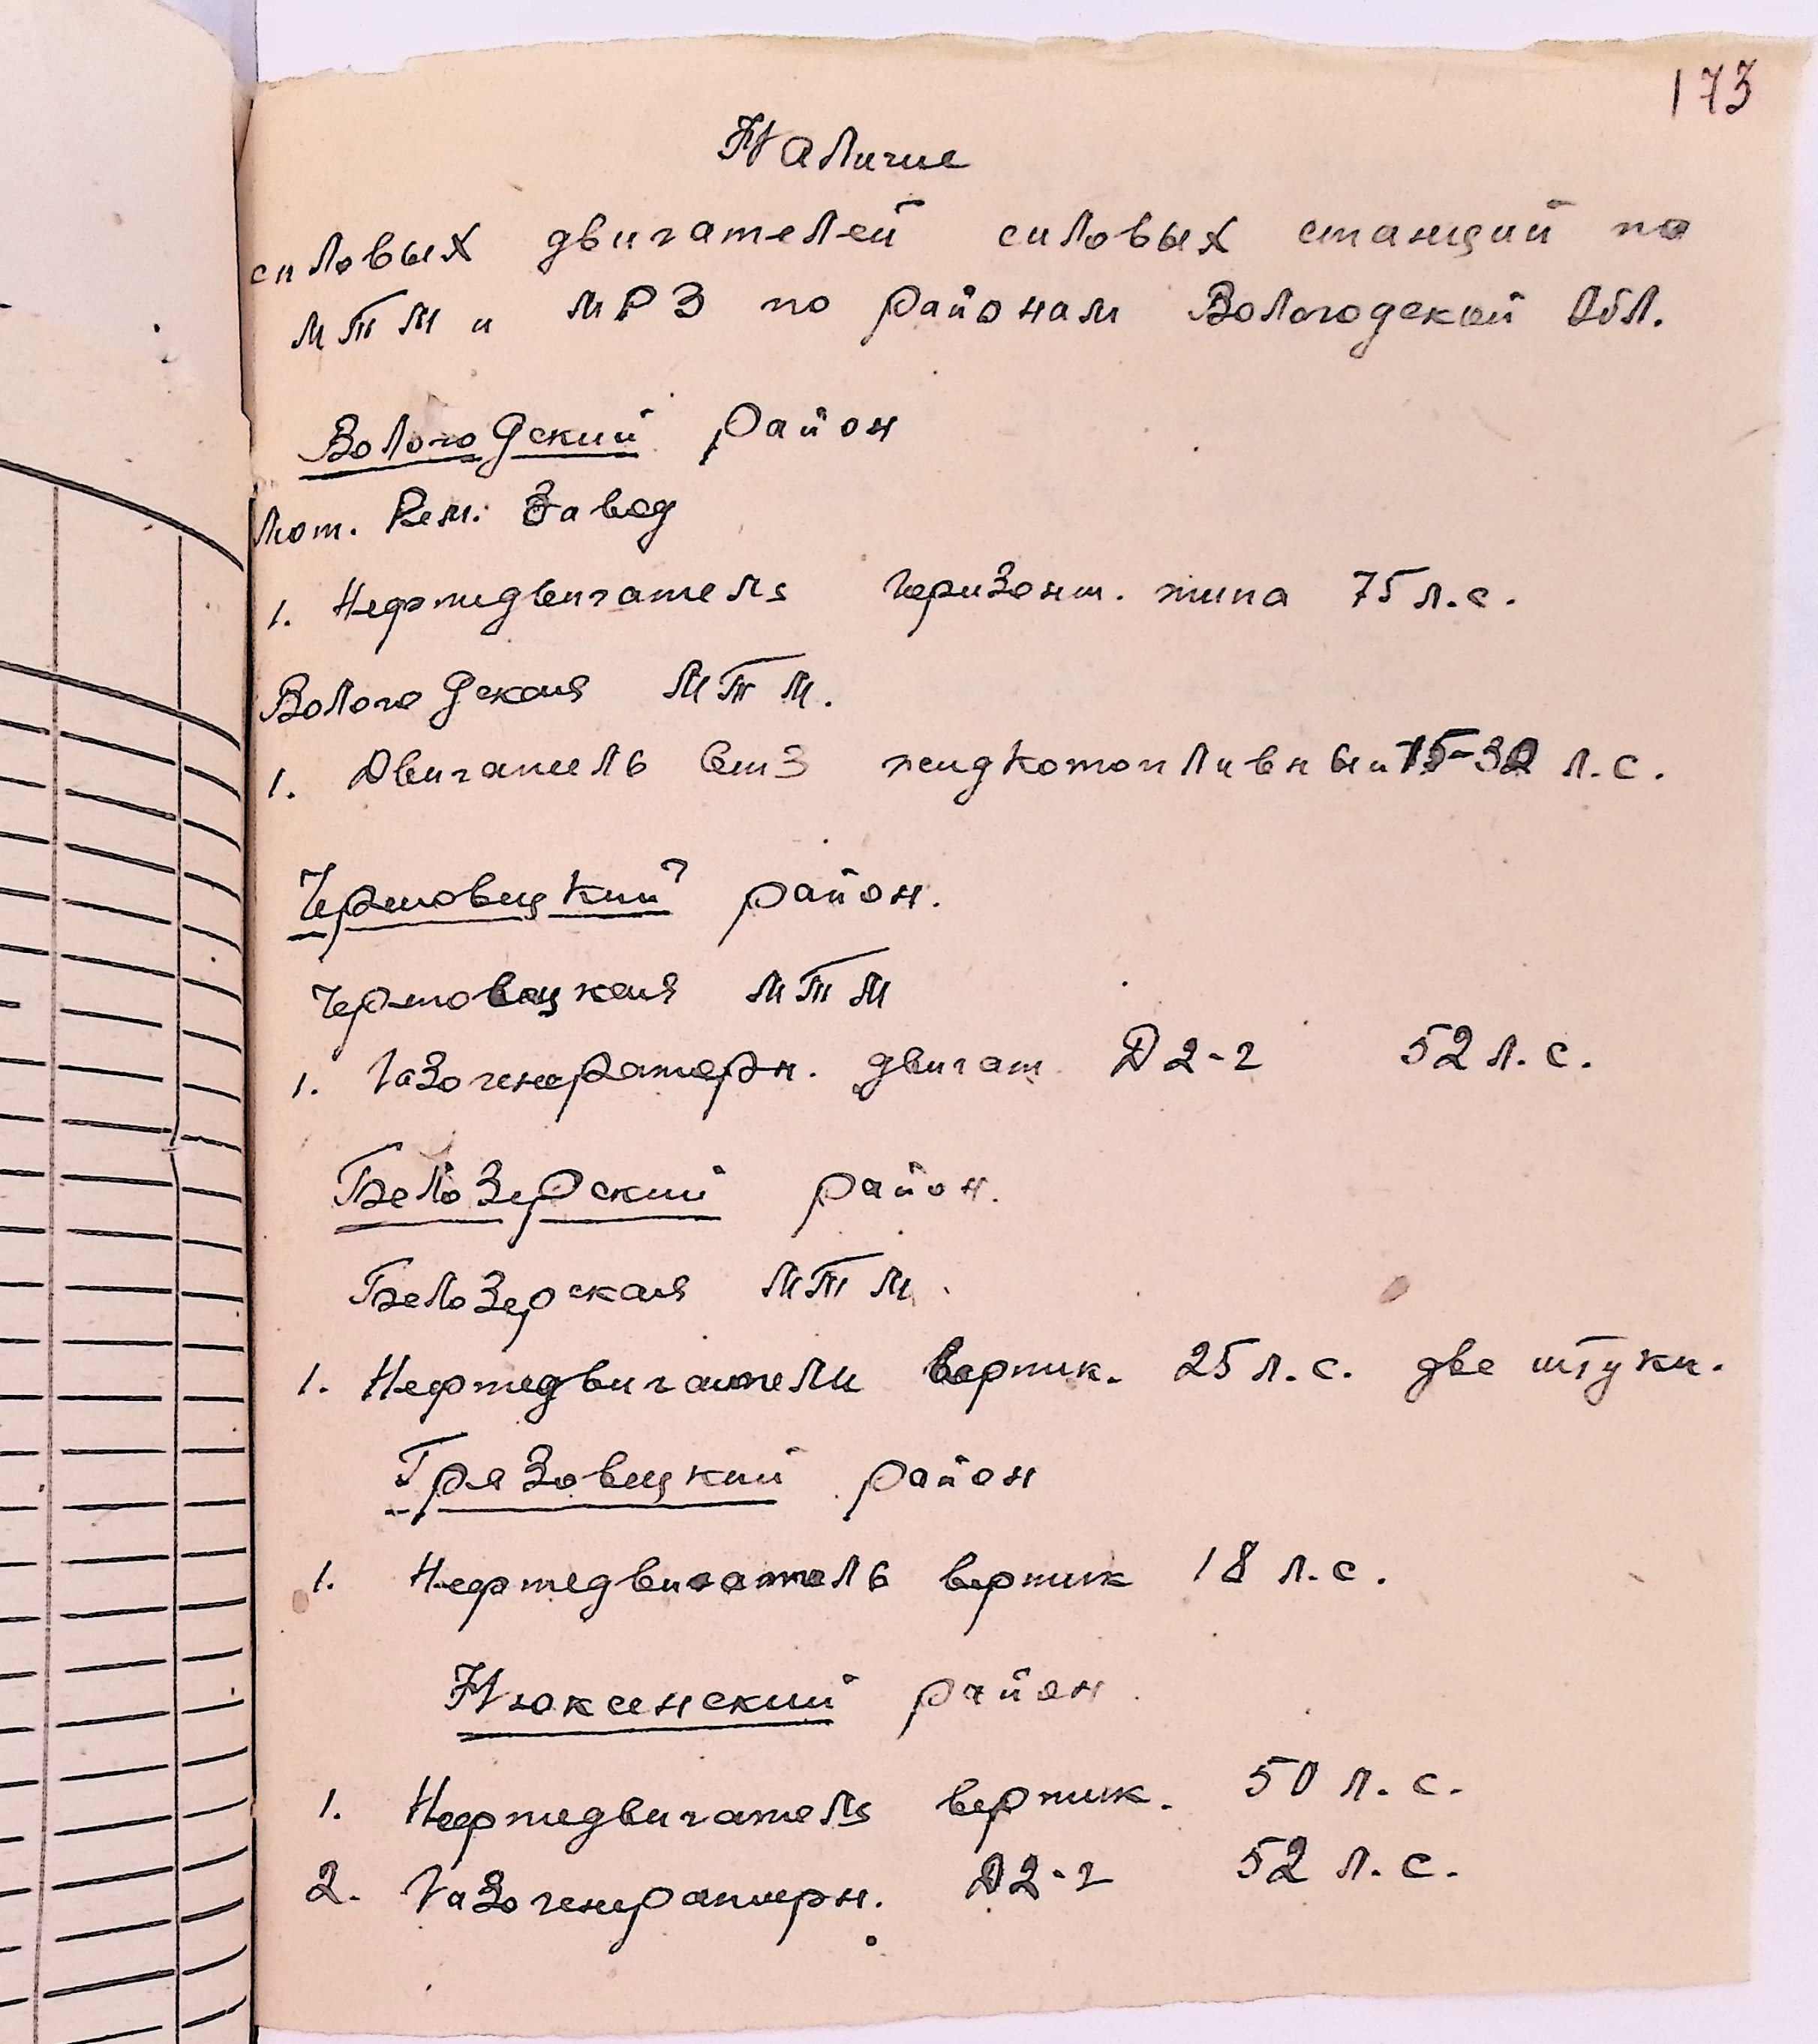 173
Наличие
силовых двигателей силовых станций по
МТМ и МРЗ по районам Вологодской Обл.
Вологодский район
Мот. Рем. Завод
1. Нефтедвигатель горизонт. типа 75 л.с.
Вологодская МТМ.
1. Двигатель ВТЗ жидкотопливный 15-30 л.с.
Чермовецкий район.
Чермовецкая МТМ
1. Газогенераторн. двигат. Д2-г 52 л.с.
Белозерский район.
Белозерская МТМ.
1. Нефтедвигатели вертик. 25 л.с. две штуки.
Грязовецкий район
1. Нефтедвигатель вертик 18 л.с.
Нюксенский район.
1. Нефтедвигатель вертик. 50 л.с.
2. Газогенераторн. Д2-г 52 л.с.